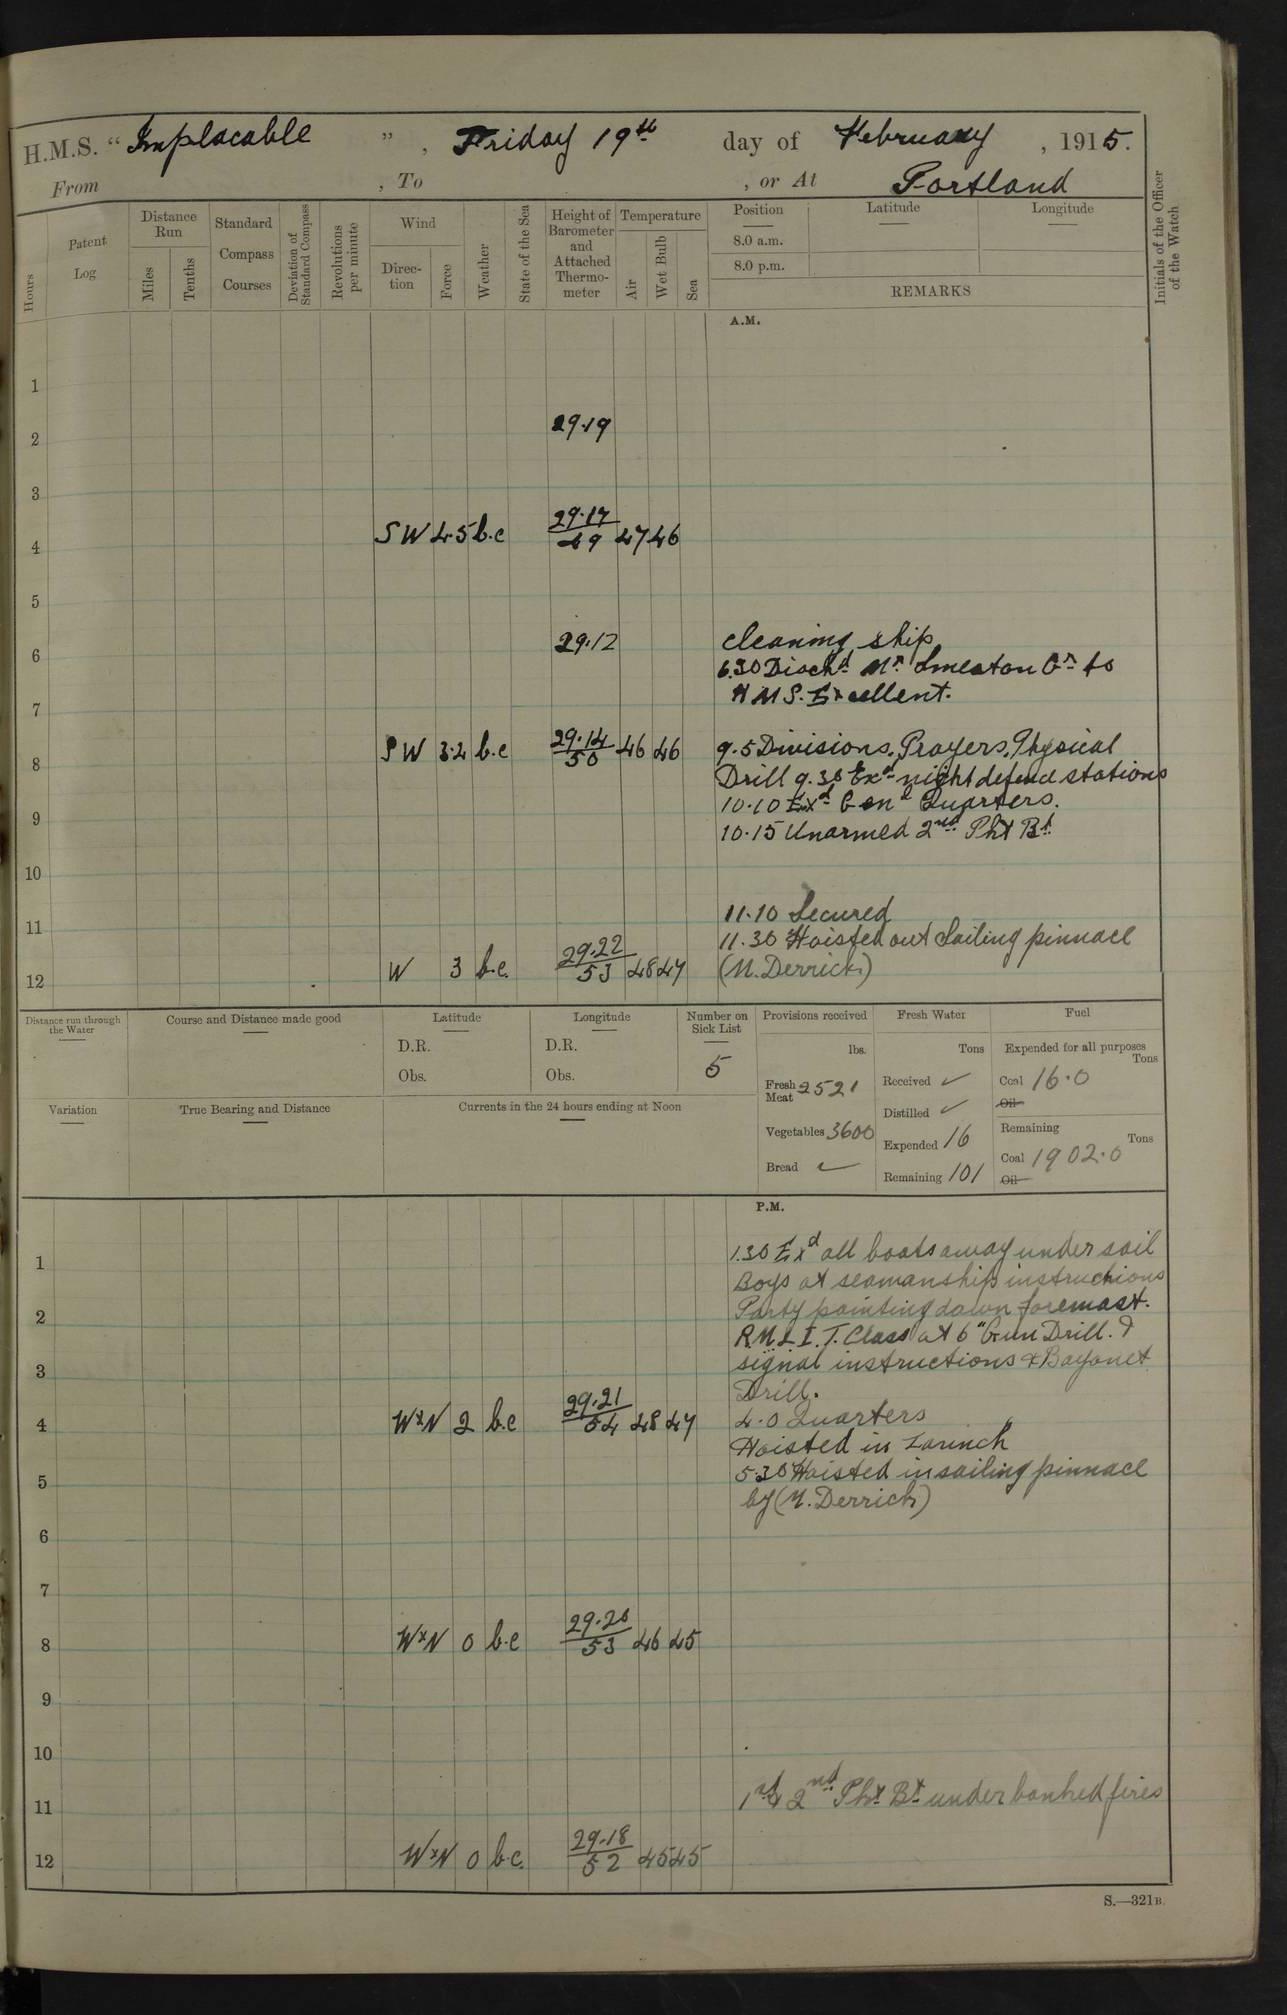 H.M.S. "Implacable", Friday 19th day of February, 1915.
From , To , or At Portland
Hours
Patent Log
Distance Run
Miles
Tenths
Standard Compass Courses
Deviation of Standard Compass
Revolutions per minute
Wind
Direction
Force
Weather
State of the Sea
Height of Barometer and Attached Thermometer
Temperature
Air
Wet Bulb
Sea
Position
Latitude
Longitude
8.0 a.m.
8.0 p.m.
REMARKS
Initials of the Officer of the Watch
A.M.
1
2 29.19
3
4 SW 4.5 b.c 29.17/49 47 46
5
6 29.12
cleaning ship
6.30 Dischd Mr Smeaton Gr to
H M S. Excellent.
7
8 SW 3.2 b.c 29.14/50 46 46
9.5 Divisions, Prayers, Physical
Drill 9.30 Exd night defence stations
10.10 Exd Genl Quarters.
10.15 Unarmed 2nd Pkt Bt
9
10
11
11.10 Secured
11.30 Hoisted out Sailing pinnace
(M. Derrick)
12 W 3 b.c. 29.22/53 48 47
Distance run through the Water
Course and Distance made good
Latitude
D.R.
Obs.
Longitude
D.R.
Obs.
Number on Sick List
5
Provisions received
lbs.
Fresh Meat 2521
Vegetables 3600
Bread ✓
Fresh Water
Tons
Received ✓
Distilled ✓
Expended 16
Remaining 101
Fuel
Expended for all purposes
Tons
Coal 16.0
Oil
Remaining
Tons
Coal 1902.0
Oil
Variation
True Bearing and Distance
Currents in the 24 hours ending at Noon
P.M.
1
1.30 Exd all boats away under sail
Boys at seamanship instructions
Party painting down foremast.
R.M.L.I. T. Class at 6" Gun Drill. &
signal instructions & Bayonet
Drill.
2
3
4 WxN 2 b.c 29.21/54 48 47
4.0 Quarters
Hoisted in Launch
5.30 Hoisted in sailing pinnace
by (M. Derrick)
5
6
7
8 WxN 0 b.c 29.20/53 46 45
9
10
11
1st & 2nd Pkt Bt under banked fires
12 WxN 0 b.c. 29.18/52 45 45
S.—321B.